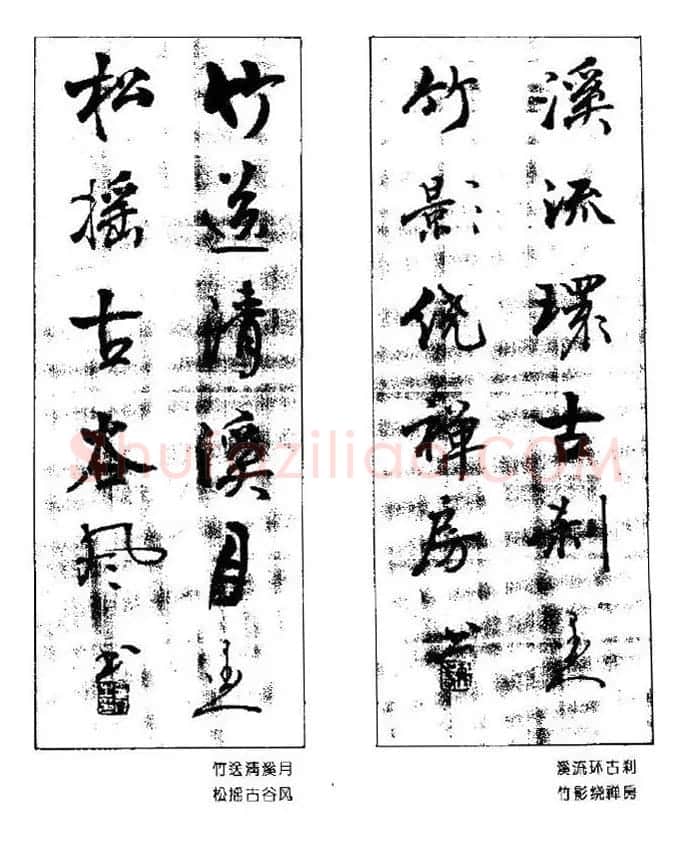 溪流環古刹
竹影绕禪房书
竹送清溪月
松摇古谷风书
Shufaziliao.COM
竹送清溪月
松摇古谷风
溪流环古刹
竹影绕禅房